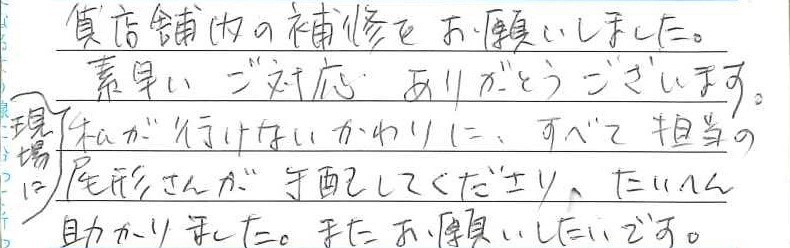 貸店舗内の補修をお願いしました。
素早いご対応ありがとうございます。
(現場に)
私が行けないかわりに、すべて担当の
尾形さんが手配してくださり、たいへん
助かりました。またお願いしたいです。